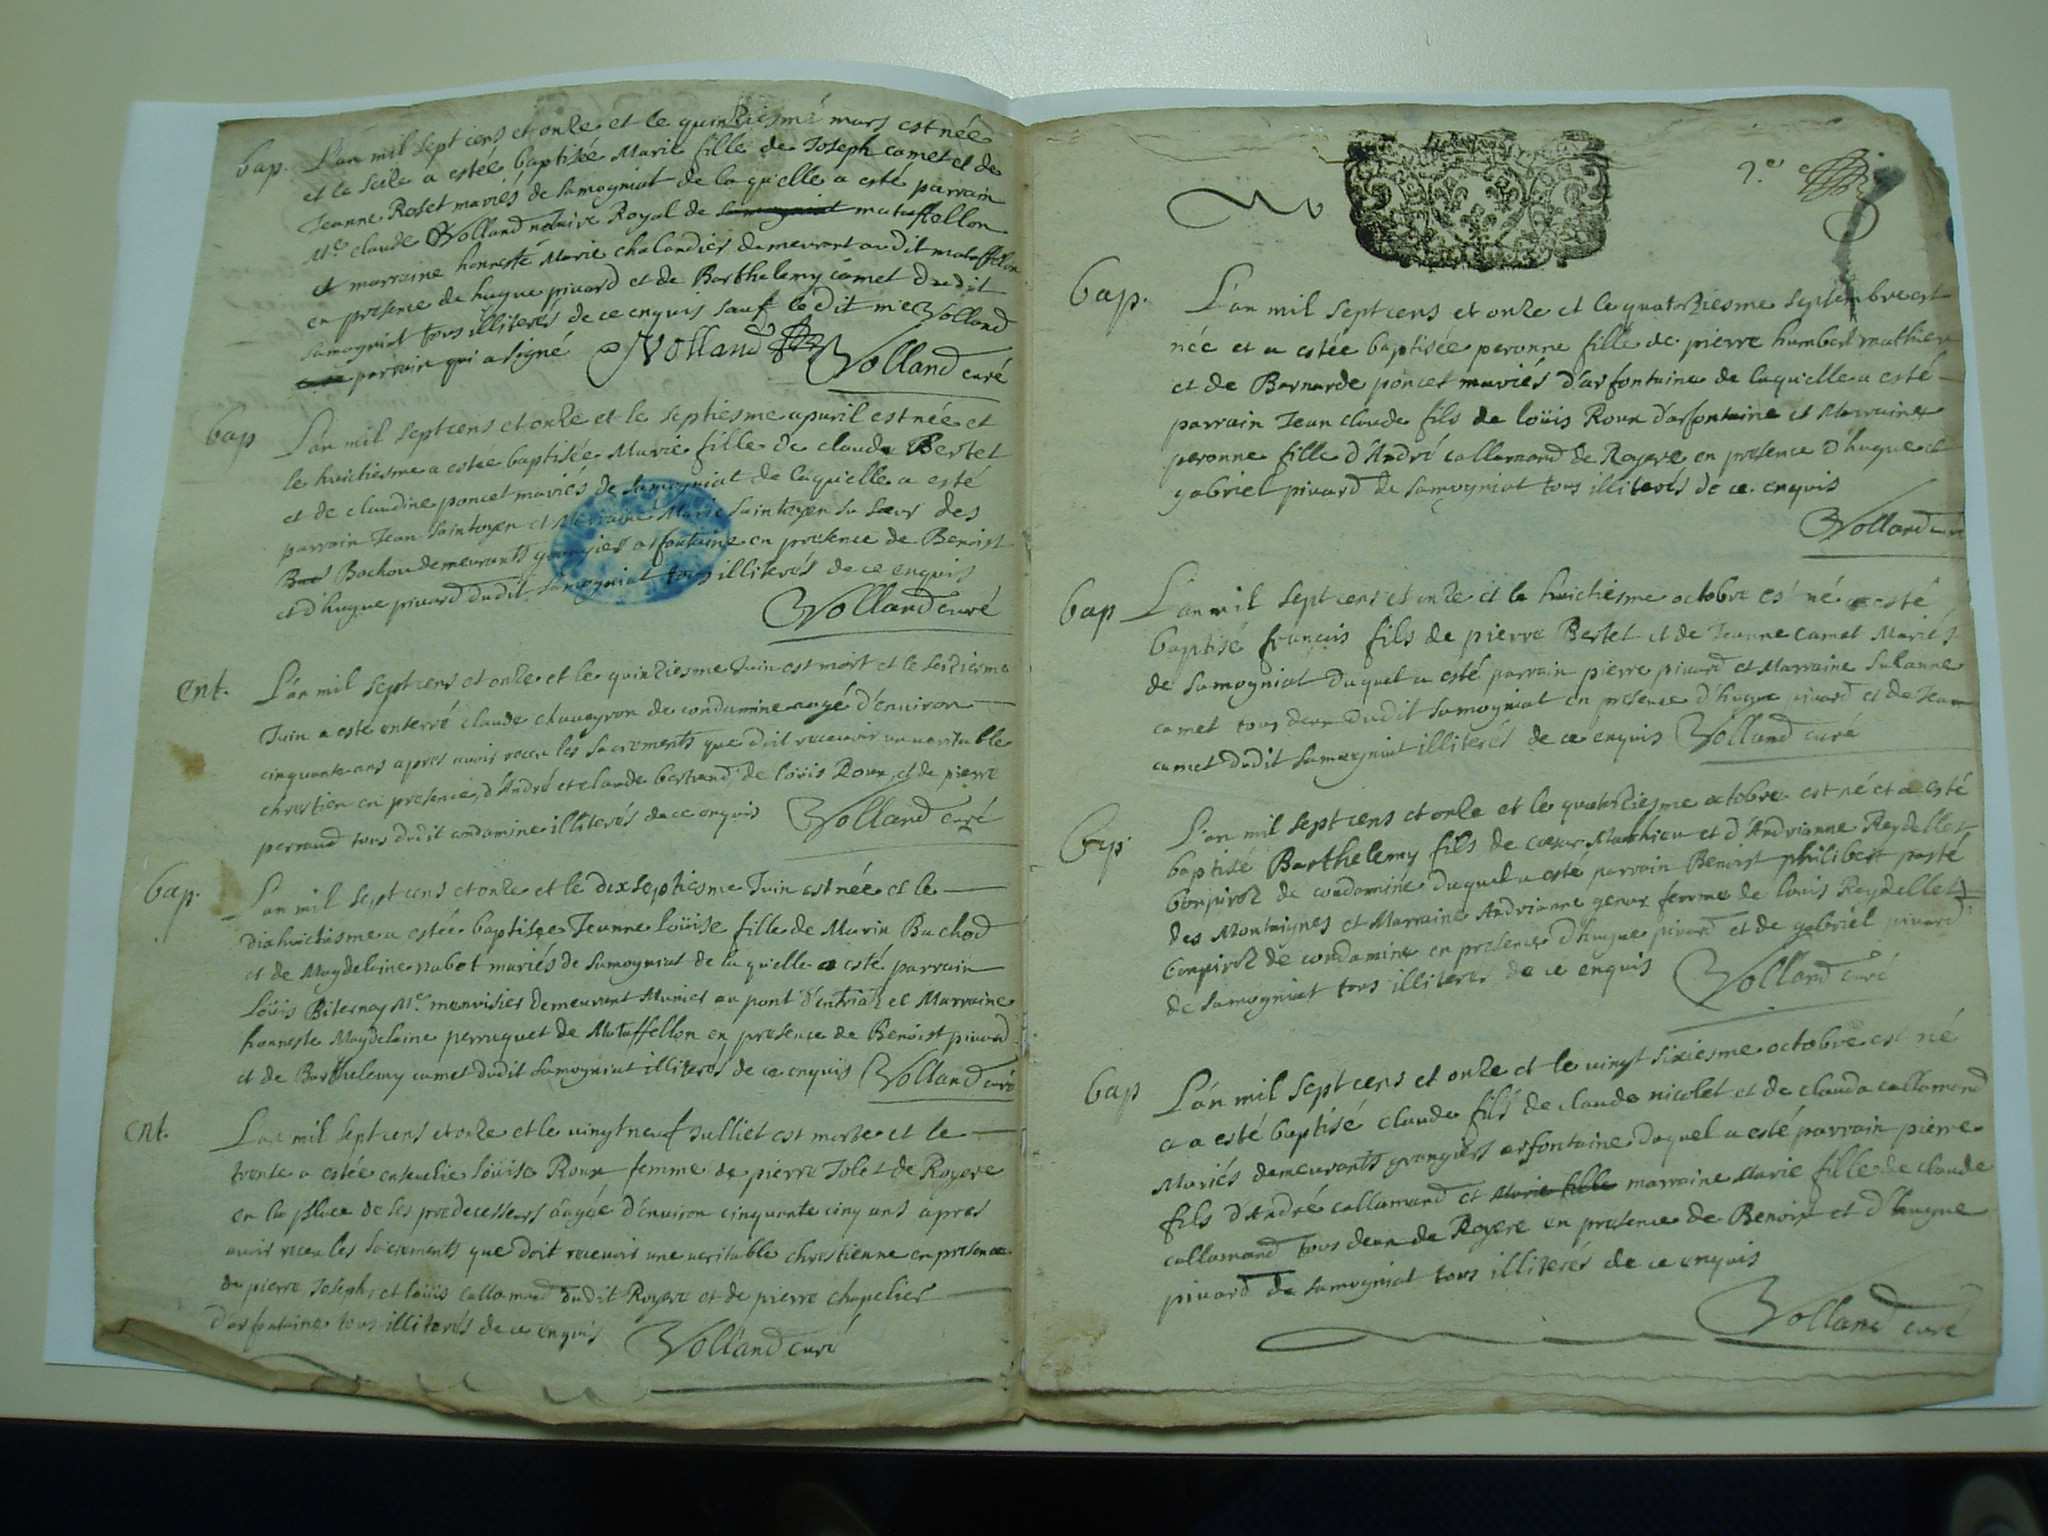 bap. L'an mil sept cens et onze et le quinziesme mars est née
et le seize a estée baptisée Marie fille de Joseph camet et de
Jeanne Roset mariés de samogniat de laquelle a esté parrain
Mre claude Volland notaire Royal de samogniat mataffellon
et marraine honneste Marie chalandier demeurant audit mataffellon
en presence de hugue pivard et de Barthelemy camet dudit
samogniat tous illiterés de ce enquis sauf le dit mre Volland
parrain qui a signé Volland Volland curé
bap L'an mil sept cens et onze et le septiesme apuril est née et
le huictiesme a estee baptisée Marie fille de claude Bertet
et de claudine poncet mariés de samogniat de laquelle a esté
parrain Jean Saintoyen et Marraine Marie Saintoyen sa sœur des
Bachou demeurants grangiers arfontaine en presence de Benoist
et d'hugue pivard dudit samogniat tous illiterés de ce enquis
Volland curé
ent. L'an mil sept cens et onze et le quinziesme Juin est mort et le seiziesme
Juin a este enterré claude chaueyron de condamine aagé d'environ
cinquante ans apres auoir receu les sacrements que doit receuoir un ueritable
chrestien en presence, d'André et claude bertrand, de loüis Roux, et de pierre
perraud tous dudit condamine illiterés de ce enquis Volland curé
bap. L'an mil sept cens et onze et le dixseptiesme Juin est née et le
dixhuictiesme a estée baptisée Jeanne loüise fille de Marin Bachod
et de Magdelaine nabot mariés de samogniat de laquelle a esté parrain
Loüis Biternay Me. menuisier demeurant Munier au pont d'entria et Marraine
honneste Magdelaine perruquet de Mataffellon en presence de Benoist pivard
et de Barthelemy camet dudit samogniat illiterés de ce enquis Volland curé
ent. L'an mil sept cens et onze et le uingt neuf Julliet est morte et le
trente a estée enseuelie loüise Roux femme de pierre Jolet de Royere
en la place de ses predecesseurs aagée d'enuiron cinquante cinq ans apres
auoir receu les sacrements que doit receuoir une ueritable chrestienne en presence
de pierre Joseph, et loüis callamand dudit Royere et de pierre chapelier
d'arfontaine tous illiterés de ce enquis Volland curé
bap. L'an mil sept cens et onze et le quatorziesme septembre est
née et a estée baptisée peronne fille de pierre humbert mathieu
et de Bernarde poncet mariés d'arfontaine de laquelle a esté
parrain Jean claude fils de loüis Roux d'arfontaine et Marraine
peronne fille d'André callamand de Royere en presence d'hugue et
gabriel pivard de samogniat tous illiterés de ce enquis
Volland curé
bap L'an mil sept cens et onze et le huictiesme octobre est né a esté
baptisé françois fils de pierre Bertet et de Jeanne camet Mariés
de samogniat duquel a esté parrain pierre pivard et Marraine Suzanne
camet tous deux dudit samogniat en presence d'hugue pivard et de Jean
camet dudit samogniat illiterés de ce enquis Volland curé
bap. L'an mil sept cens et onze et le quatorziesme octobre est né et a esté
baptisé Barthelemy fils de cæsar Mathieu et d'Andrianne Reydellet
bonpiroz de condamine duquel a esté parrain Benoist philibert parté
des Montaignes et Marraine Andrianne genox femme de loüis Reydellet
bonpiroz de condamine en presence d'hugue pivard et de gabriel pivard
de samogniat tous illiterés de ce enquis Volland curé
bap L'an mil sept cens et onze et le uingt sixiesme octobre est né
et a esté baptisé claude fils de claude nicolet et de clauda callamand
Mariés demeurants grangiers arfontaine duquel a esté parrain pierre
fils d'André callamand et Marie fille marraine Marie fille de claude
callamand tous deux de Royere en presence de Benoist et d'hugue
pivard de samogniat tous illiterés de ce enquis
Volland curé